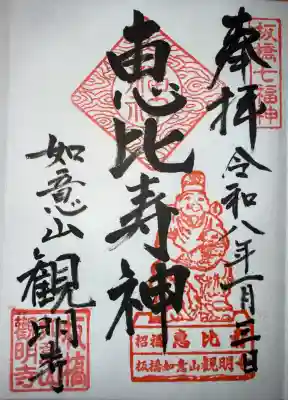 板橋七福神
奉拝
令和八年一月三日
恵比寿神
如意山
観明寺
招福 恵比寿
板橋如意山観明寺
板橋
観明寺